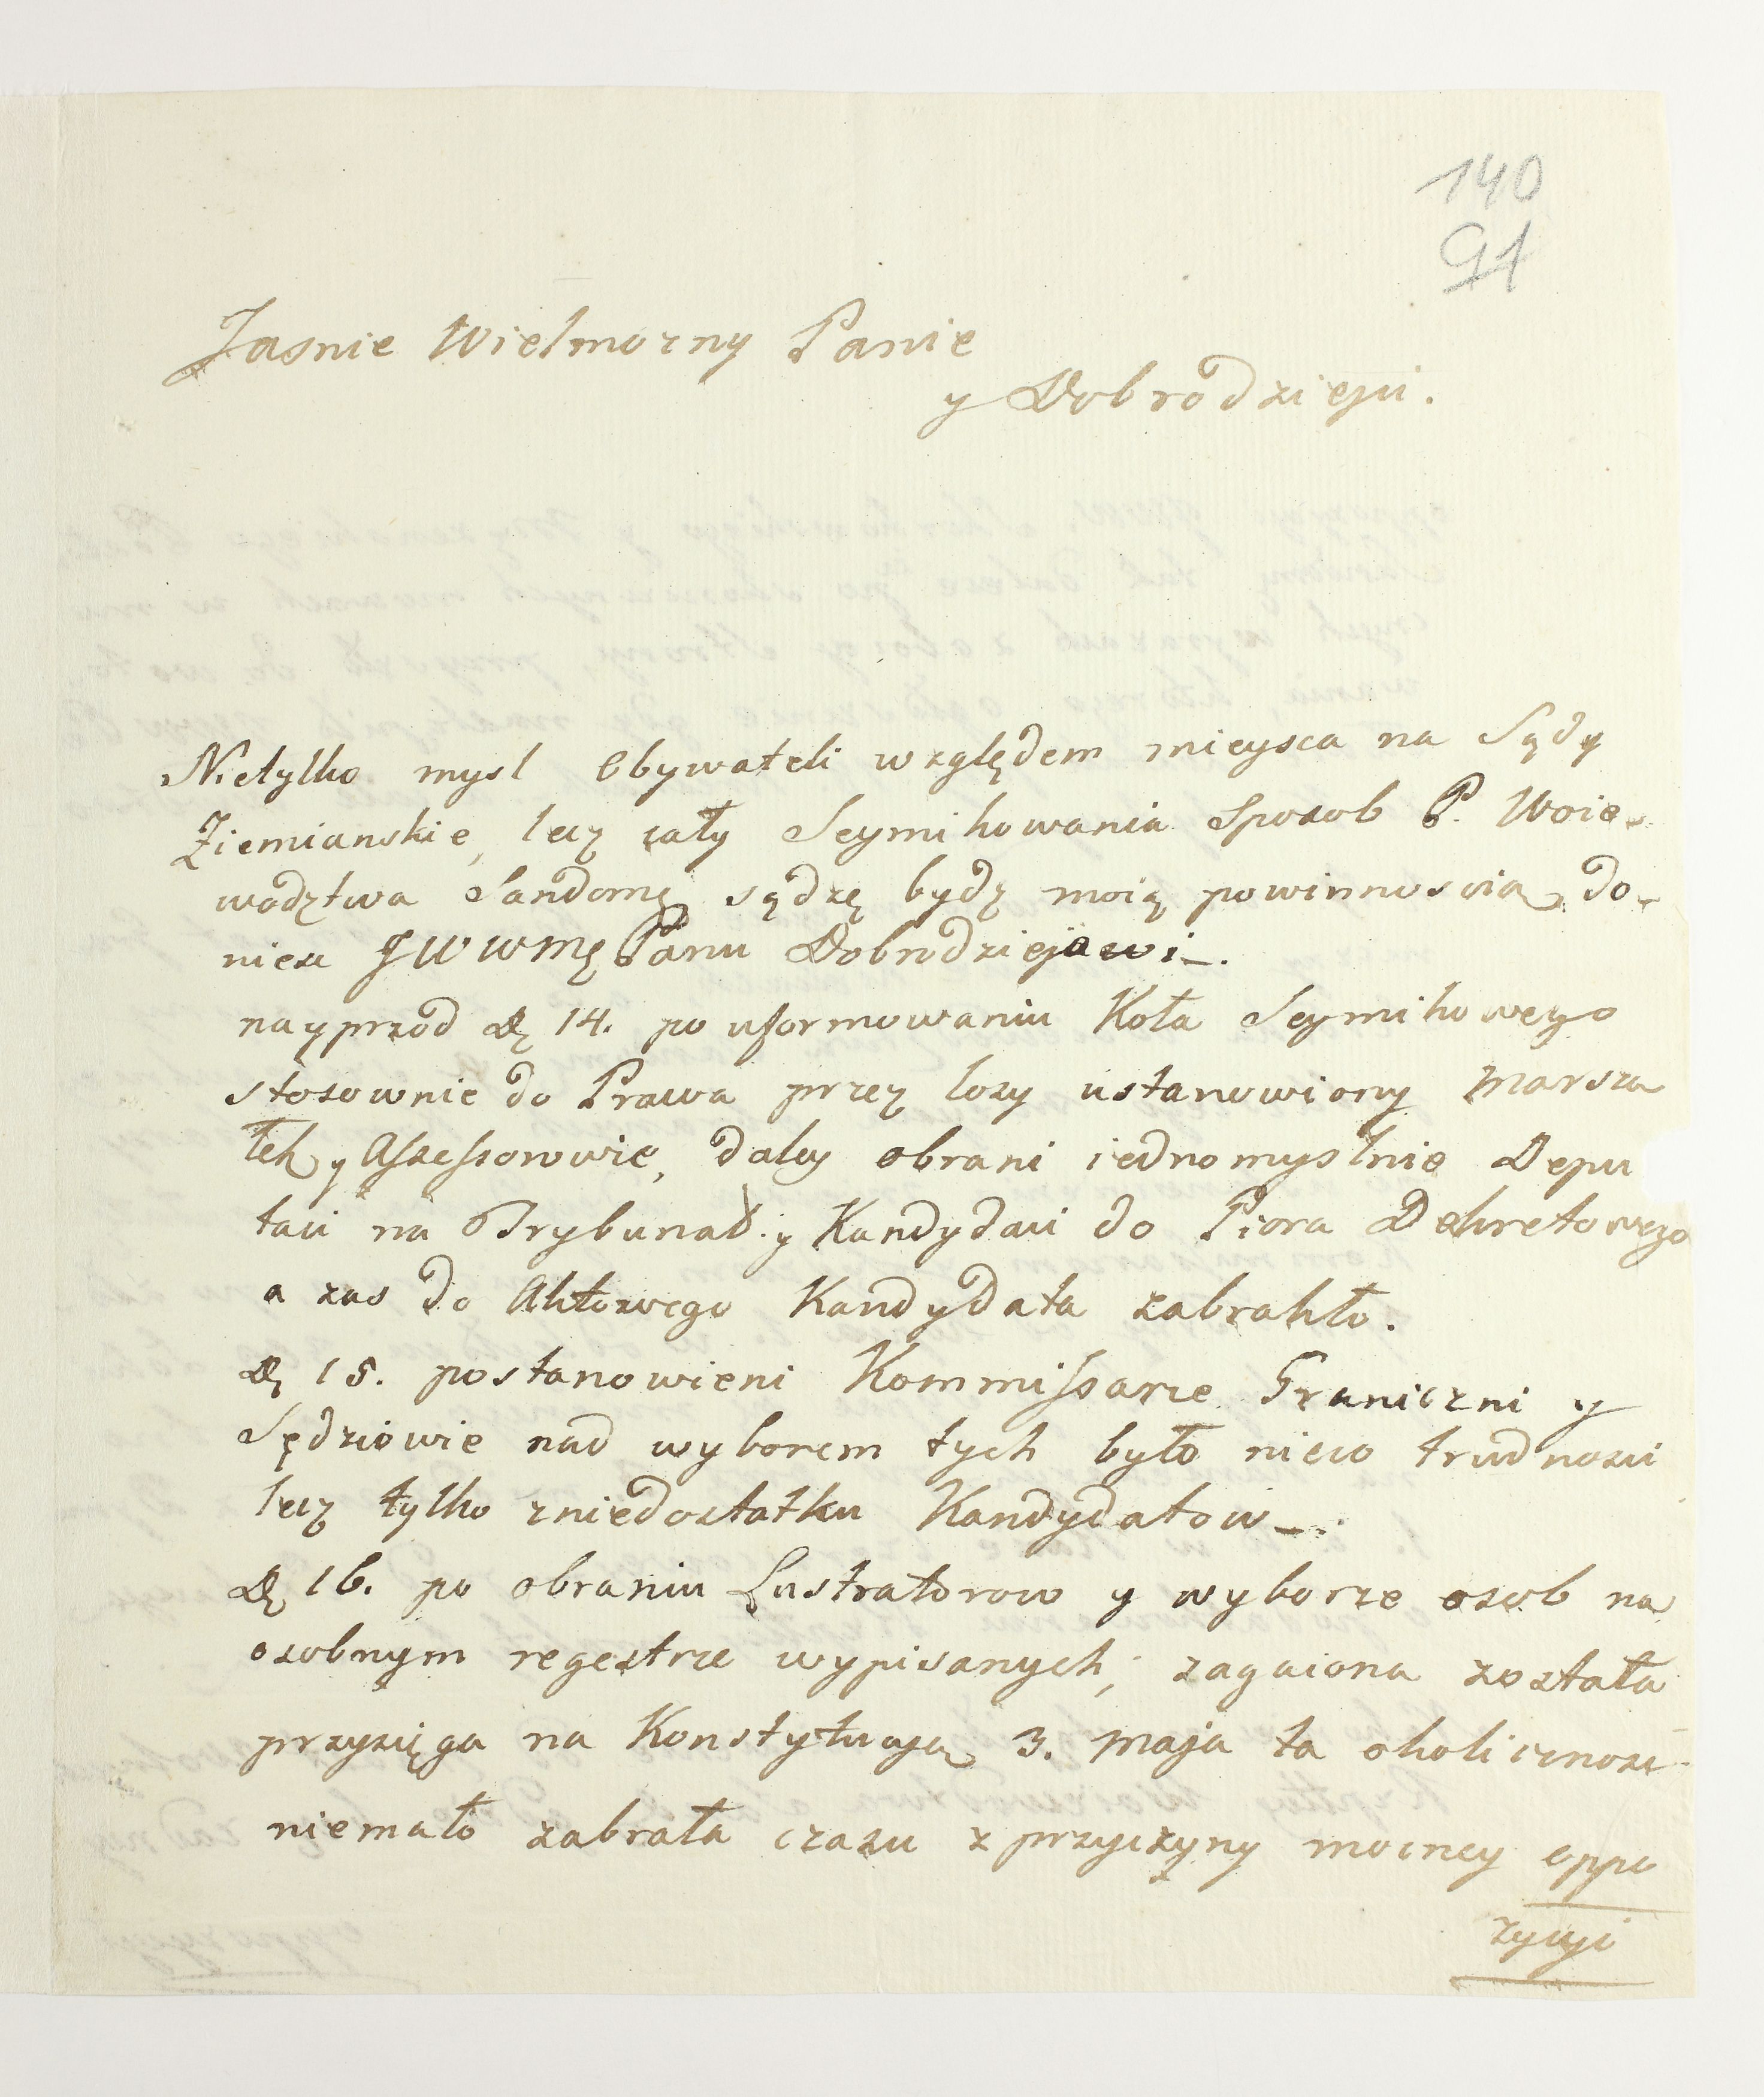 140
91
Jasnie Wielmozny Panie
y Dobrodzieju.
Nietylko mysl Obywateli względem mieysca na Sądy
Ziemianskie, lecz cały Seymikowania Sposob P. Woie-
wodztwa Sandomę sądzę bydz moią powinnoscią do-
niesc JW WMę Panu Dobrodziejowi_.
nayprzod Dę 14. po uformowaniu Koła Seymikowego
stosownie do Prawa przez losy ustanowiony Marsza
łek y Assessorowie, daley obrani iednomyslnie Depu
taci na Trybunał y Kandydaci do Piora Dekretowego
a zas do Aktowego Kandydata zabrakło.
Dę 15. postanowieni Kommissarze Graniczni y
Sędziowie nad wyborem tych było nieco trudnosci
lecz tylko zniedostatku Kandydatow_.
Dę 16. po obraniu Lustratorow y wyborze osob na
osobnym regestrze wypisanych; zagaiona została
przysięga na Konstytucyą 3. Maja ta okolicznosc
niemało zabrała czasu z przyczyny mocney oppo
zycyi